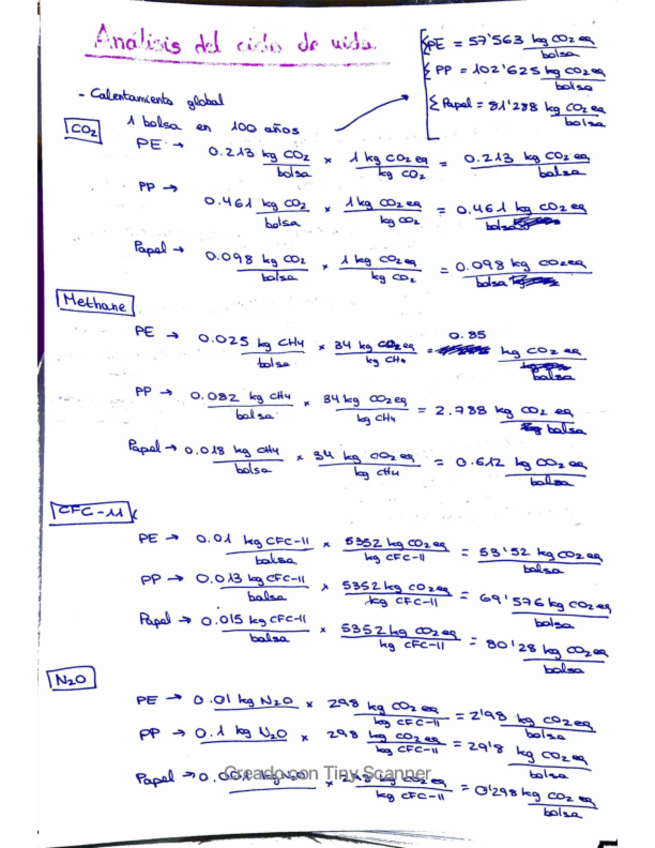 Análisis del ciclo de vida.
Σ PE = 57'563 kg CO2 eq / bolsa
Σ PP = 102'625 kg CO2 eq / bolsa
Σ Papel = 81'288 kg CO2 eq / bolsa
- Calentamiento global
1 bolsa en 100 años
CO2
PE → 0.213 kg CO2 / bolsa × 1 kg CO2 eq / kg CO2 = 0.213 kg CO2 eq / bolsa
PP → 0.461 kg CO2 / bolsa × 1 kg CO2 eq / kg CO2 = 0.461 kg CO2 eq / bolsa
Papel → 0.098 kg CO2 / bolsa × 1 kg CO2 eq / kg CO2 = 0.098 kg CO2 eq / bolsa
Methane
PE → 0.025 kg CH4 / bolsa × 34 kg CO2 eq / kg CH4 = 0.85 kg CO2 eq / bolsa
PP → 0.082 kg CH4 / bolsa × 34 kg CO2 eq / kg CH4 = 2.788 kg CO2 eq / bolsa
Papel → 0.018 kg CH4 / bolsa × 34 kg CO2 eq / kg CH4 = 0.612 kg CO2 eq / bolsa
CFC-11
PE → 0.01 kg CFC-11 / bolsa × 5352 kg CO2 eq / kg CFC-11 = 53'52 kg CO2 eq / bolsa
PP → 0.013 kg CFC-11 / bolsa × 5352 kg CO2 eq / kg CFC-11 = 69'576 kg CO2 eq / bolsa
Papel → 0.015 kg CFC-11 / bolsa × 5352 kg CO2 eq / kg CFC-11 = 80'28 kg CO2 eq / bolsa
N2O
PE → 0.01 kg N2O × 298 kg CO2 eq / kg CFC-11 = 2'98 kg CO2 eq / bolsa
PP → 0.1 kg N2O × 298 kg CO2 eq / kg CFC-11 = 29'8 kg CO2 eq / bolsa
Papel → 0.001 kg N2O × 298 kg CO2 eq / kg CFC-11 = 0'298 kg CO2 eq / bolsa
Creado con Tiny Scanner